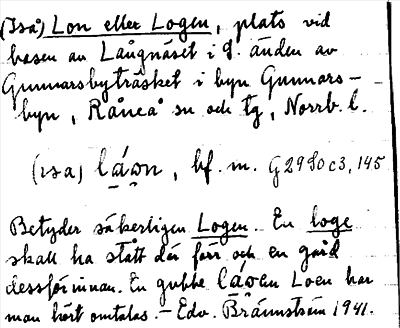 (Iså) Lon eller Logen, plats vid
basen av Långnäset i S. änden av
Gunnarsbyträsket i byn Gunnars-
byn, Råneå sn och tg, Norrb. l.
(ısa) láωn, bf. m. G2980c3, 145
Betyder säkerligen Logen. En loge
skall ha stått där förr och en gård
dessförinnan. En gubbe láωen Loen har
man hört omtalas. - Edv. Brännström 1941.